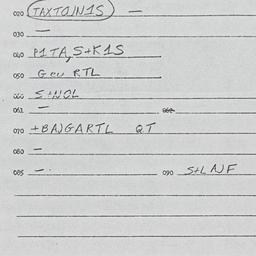 020 TAXTO/N1S —
030 —
040 P1TA,S+K1S
050 Geu RTL
060 S+NOL
061 — 062
070 +BA/GARTL QT
080 —
085 —. 090 S+LNF